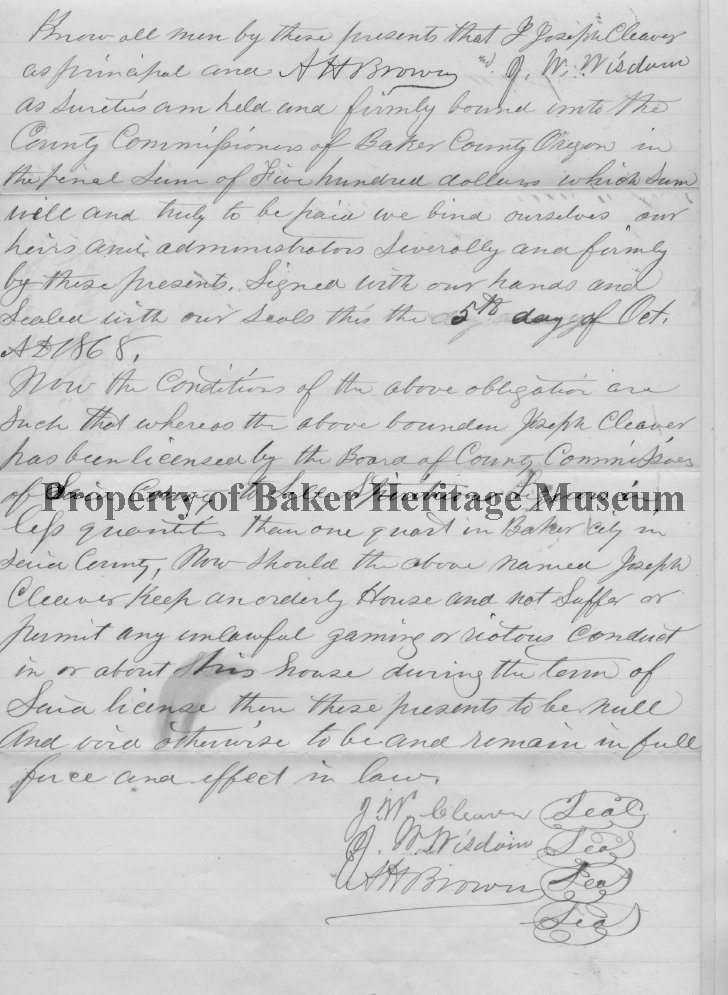 Know all men by these presents that I Joseph Cleaver
as principal and A H Brown and J. W. Wisdom
as Sureties am held and firmly bound unto the
County Commissioners of Baker County Oregon in
the penal Sum of Five hundred dollars which Sum
will and truly to be paid we bind ourselves our
heirs and administrators Severally and firmly
by these presents. Signed with our hands and
Sealed with our Seals this the 5th day of Oct.
AD 1868.
Now the Conditions of the above obligation are
Such that whereas the above bounden Joseph Cleaver
has been licensed by the Board of County Commissioners
of Said County to Sell Spirituous in
Property of Baker Heritage Museum
less quantities than one quart in Baker City in
Said County, Now Should the above named Joseph
Cleaver Keep an orderly House and not Suffer or
permit any unlawful gaming or riotous conduct
in or about this house during the term of
Said license then these presents to be null
And void otherwise to be and remain in full
force and effect in law.
J. W. Cleaver Seal
J. W. Wisdom Seal
A H Brown Seal
Seal